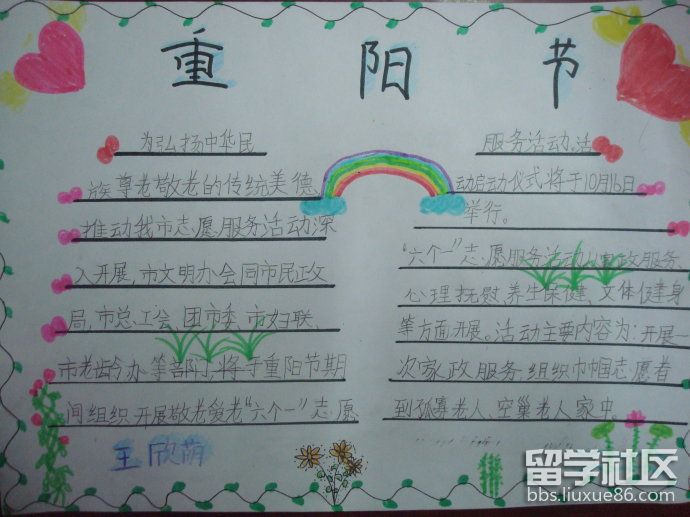 重阳节
为弘扬中华民
族尊老敬老的传统美德
推动我市志愿服务活动深
入开展,市文明办会同市民政
局,市总工会,团市委,市妇联,
市老龄办等部门,将于重阳节期
间组织开展敬老爱老“六个一”志愿
王欣荫
服务活动,活
动启动仪式将于10月16日
举行。
“六个一”志愿服务活动从家政服务
心理抚慰、养生保健、文体健身
等方面开展。活动主要内容为:开展一
次家政服务,组织巾帼志愿者
到孤寡老人、空巢老人家中。
留学社区
bbs.liuxue86.com